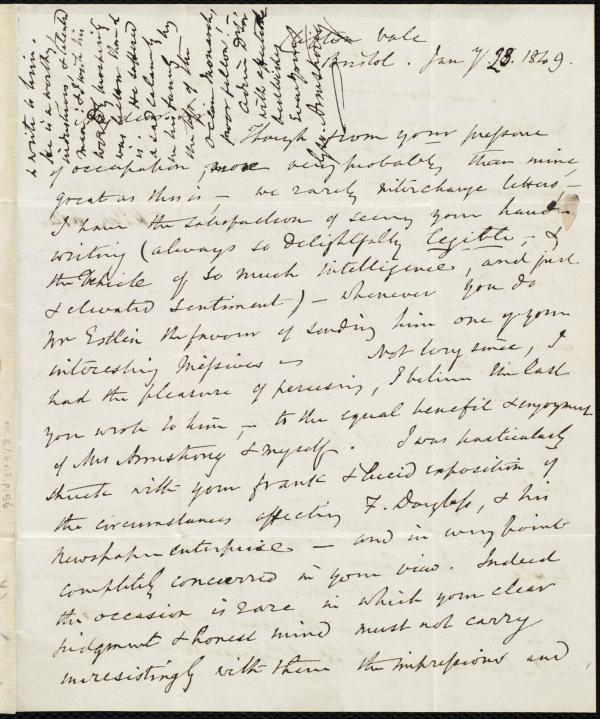 Clifton Vale
Bristol. Jany 28. 1849.
Though from your pressure
of occupation, more very probably than mine,
great as this is — we rarely interchange letters, —
I have the satisfaction of seeing your hand-
writing (always so delightfully legible, &
the vehicle of so much intelligence, and just
& elevated sentiment) — whenever you do
Mr Estlin the favour of sending him one of your
interesting missives — Not long since, I
had the pleasure of perusing, I believe the last
you wrote to him, — to the equal benefit & enjoyment
of Mrs Armstrong & myself. I was particularly
struck with your frank & lucid exposition of
the circumstances affecting F. Douglass, & his
Newspaper enterprise — and in every point
completely concurred in your view. Indeed
the occasion is rare in which your clear
judgment & honest mind must not carry
unresistingly with them the impressions and
& write to him.
He is a worthy
industrious, & talented
man: & I wish his
worldly prosperity
was better than it
is. He suffered
a sad calamity
in his family by
the loss of the
poor fellow!
Adieu Dr Sir
with affectionate
Geo. Armstrong